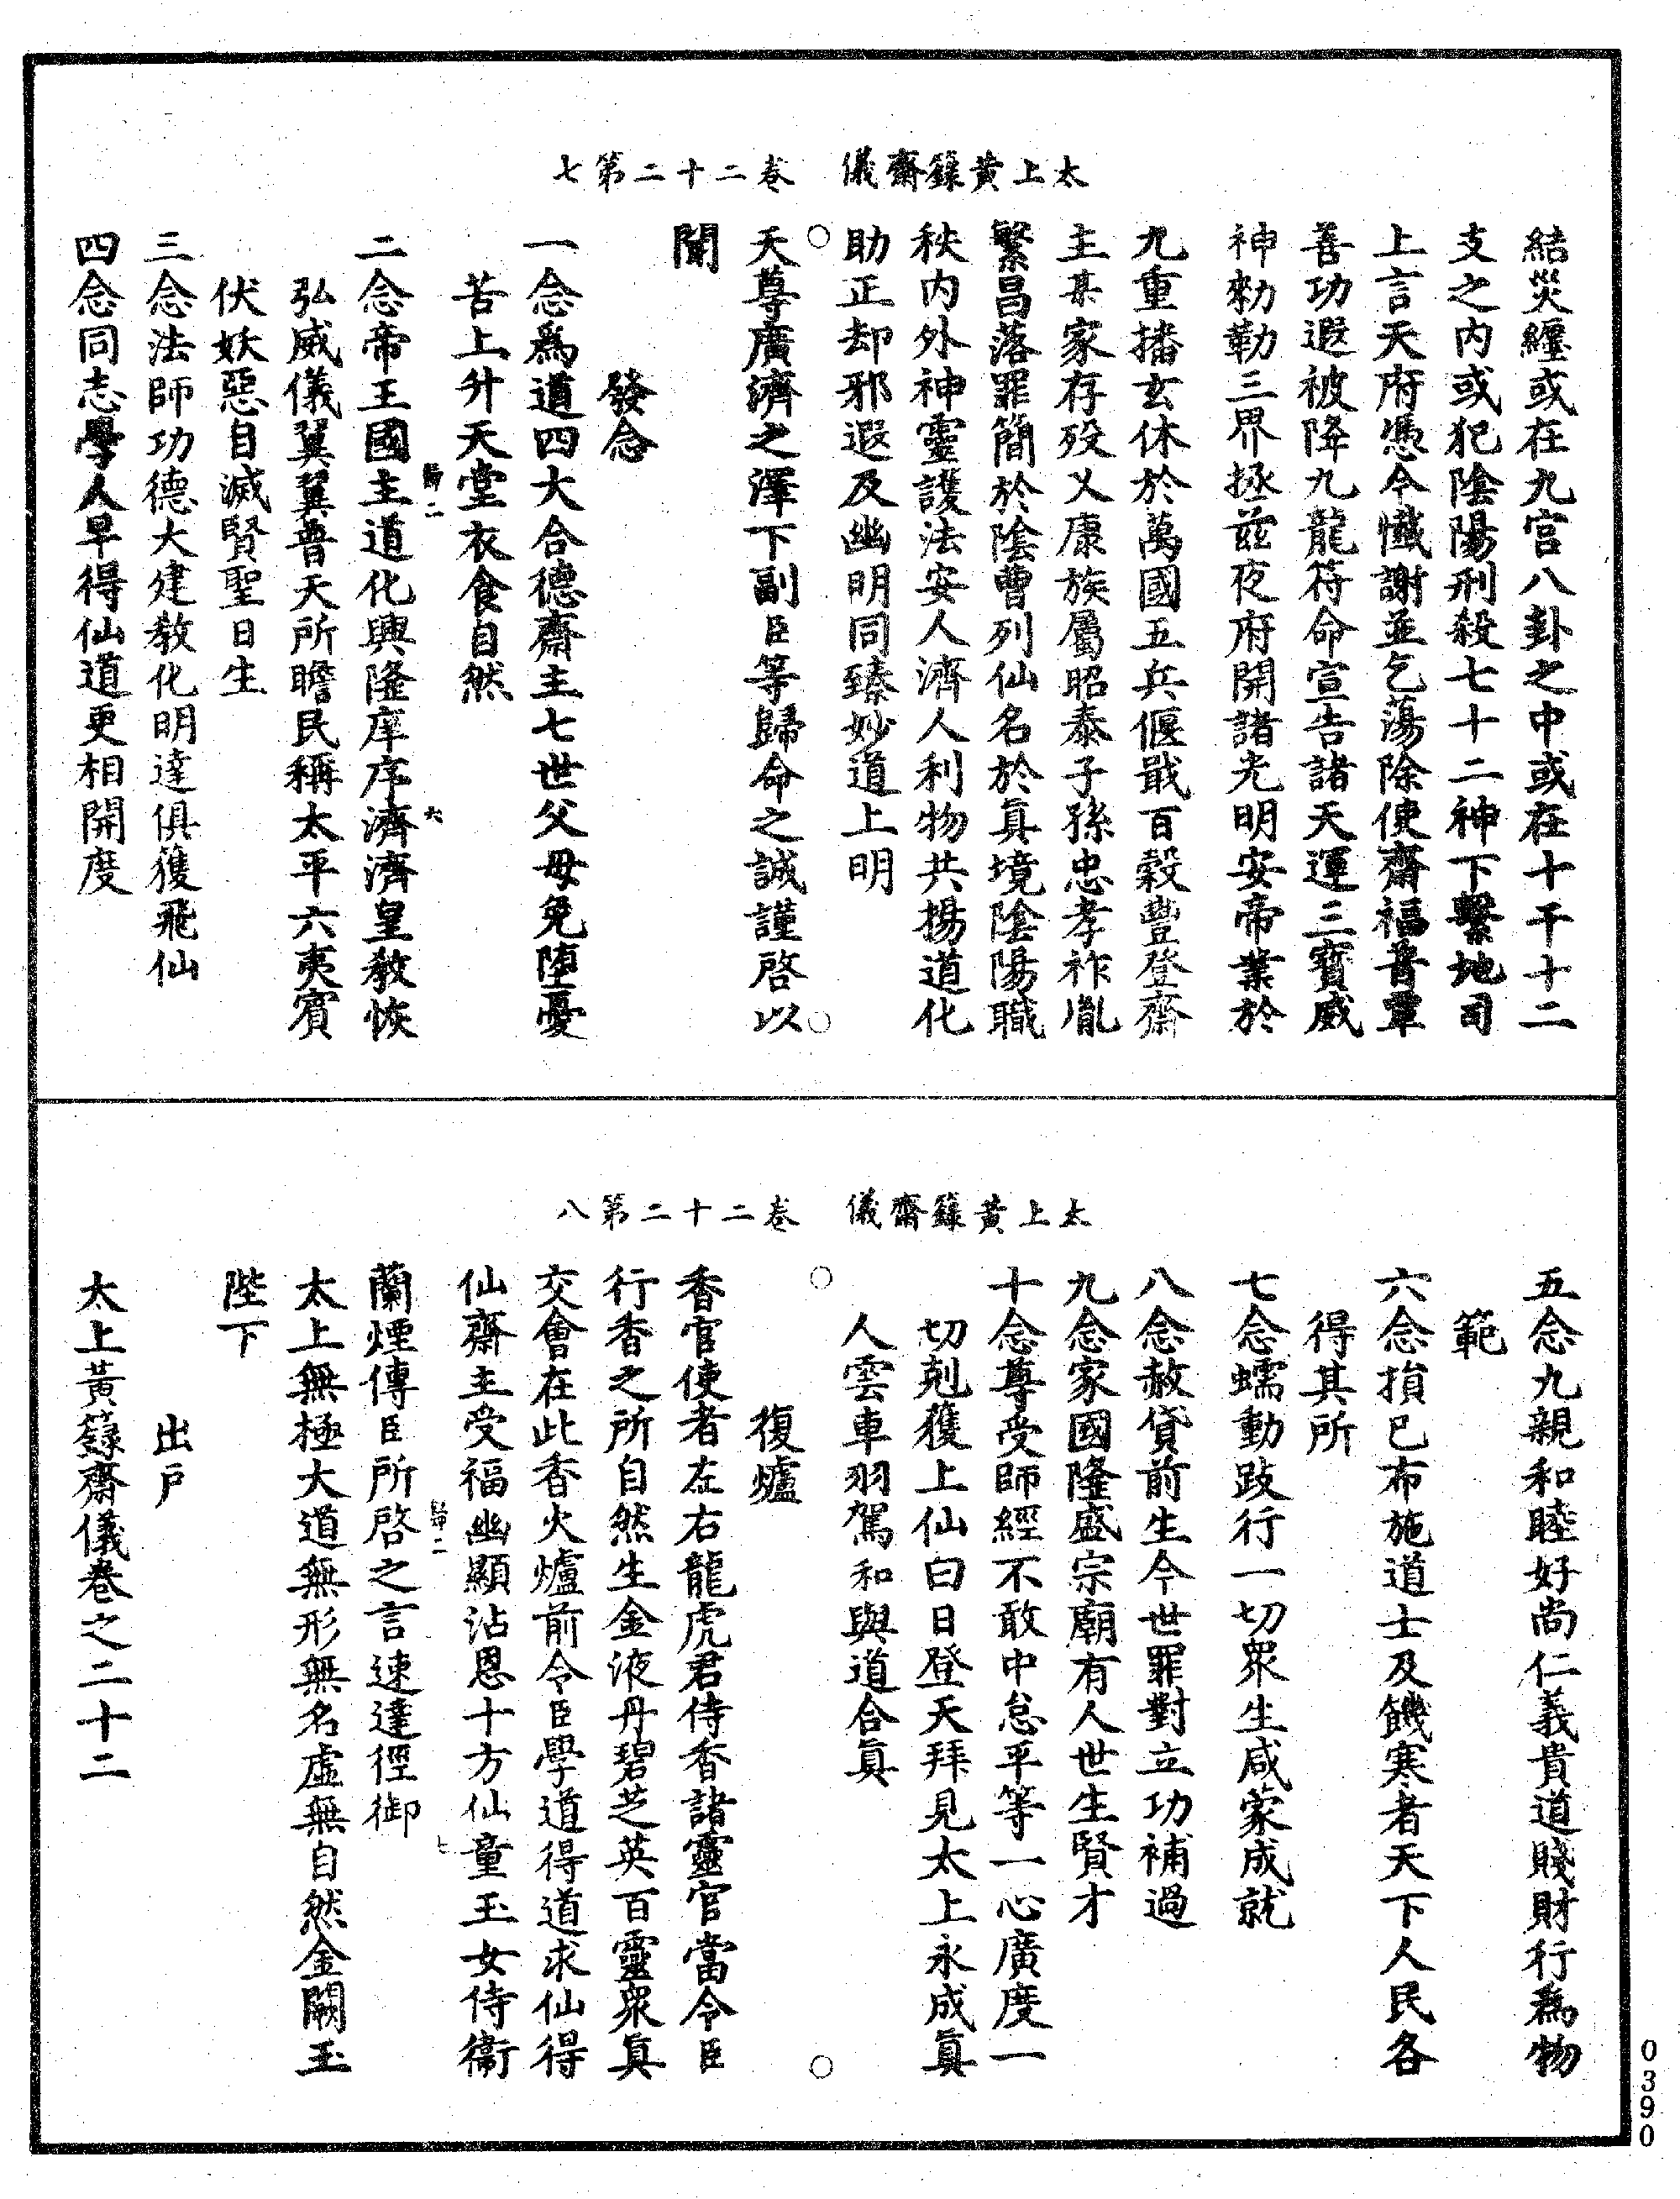 太上黃籙齋儀　卷二十二第七
結災纏或在九宮八卦之中或在十干十二
支之內或犯陰陽刑殺七十二神下繫地司
上言天府憑今懺謝並乞蕩除使齋福普覃
善功遐被降九龍符命宣告諸天運三寶威
神勑勒三界拯茲夜府開諸光明安帝業於
九重播玄休於萬國五兵偃戢百穀豐登齋
主某家存歿乂康族屬昭泰子孫忠孝祚胤
繁昌落罪簡於陰曹列仙名於眞境陰陽職
秩內外神靈護法安人濟人利物共揚道化
助正却邪遐及幽明同臻妙道上明
天尊廣濟之澤下副臣等歸命之誠謹啓以
聞
發念
一念爲道四大合德齋主七世父母免墮憂
苦上升天堂衣食自然
歸二　六
二念帝王國主道化興隆庠序濟濟皇教恢
弘威儀翼翼普天所瞻民稱太平六夷賓
伏妖惡自滅賢聖日生
三念法師功德大建教化明達俱獲飛仙
四念同志學人早得仙道更相開度
太上黃籙齋儀　卷二十二第八
五念九親和睦好尚仁義貴道賤財行爲物
範
六念損己布施道士及饑寒者天下人民各
得其所
七念蠕動跂行一切眾生咸蒙成就
八念赦貸前生今世罪對立功補過
九念家國隆盛宗廟有人世生賢才
十念尊受師經不敢中怠平等一心廣度一
切剋獲上仙白日登天拜見太上永成眞
人雲車羽駕和與道合眞
復爐
香官使者左右龍虎君侍香諸靈官當令臣
行香之所自然生金液丹碧芝英百靈眾眞
交會在此香火爐前令臣學道得道求仙得
仙齋主受福幽顯沾恩十方仙童玉女侍衞
歸二　七
蘭煙傳臣所啓之言速達徑御
太上無極大道無形無名虛無自然金闕玉
陛下
出戶
太上黃籙齋儀卷之二十二
0390